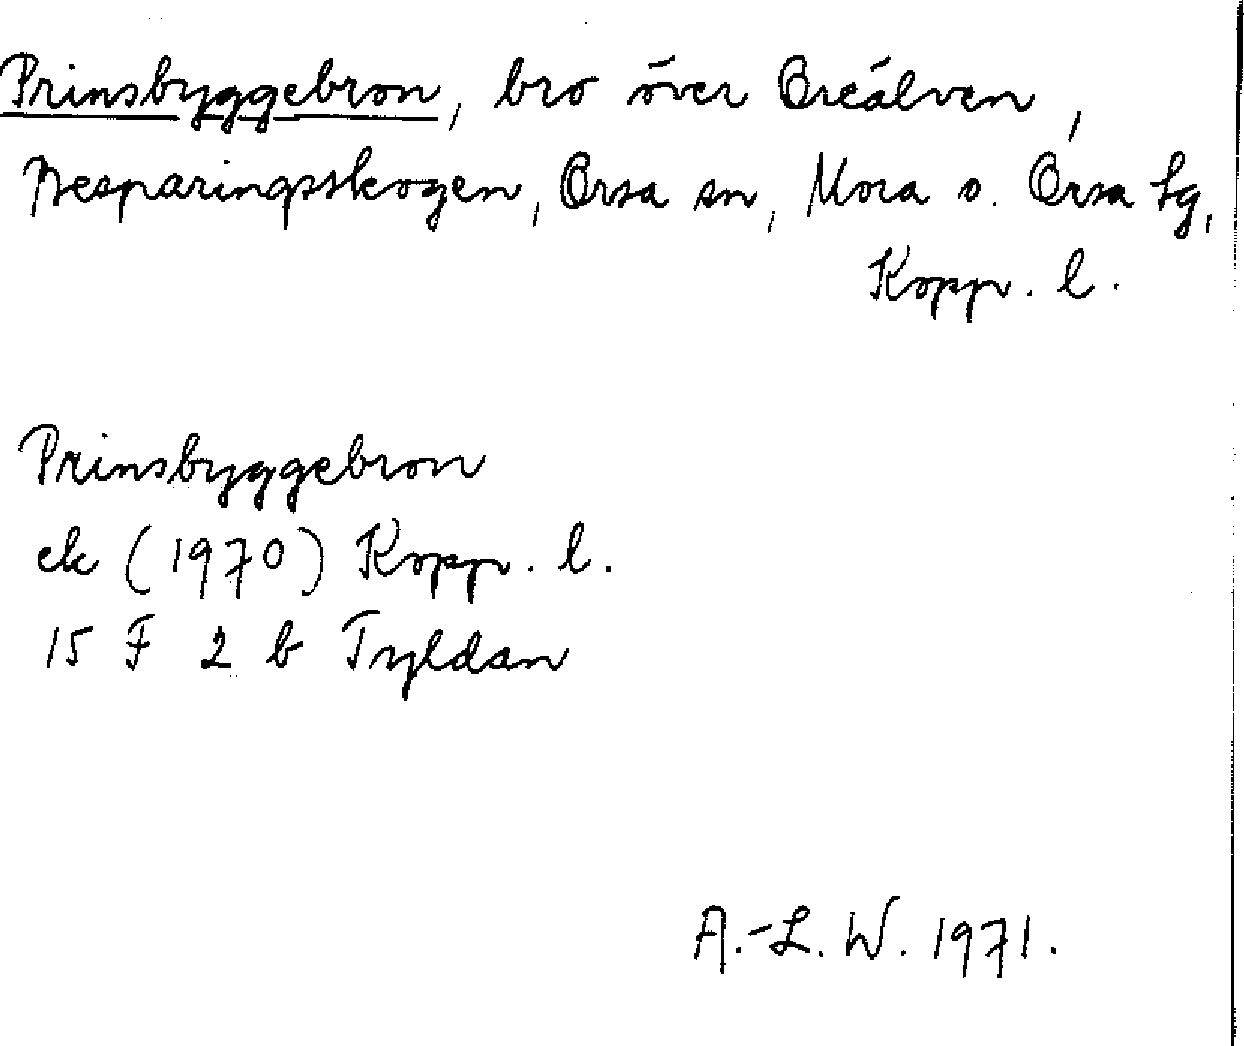 Prinsbyggebron, bro över Oreälven,
Besparingsskogen, Orsa sn, Mora o. Orsa tg,
Kopp. l.
Prinsbyggebron
ek (1970) Kopp. l.
15 F 2 b Tryldan
A.-L. W. 1971.